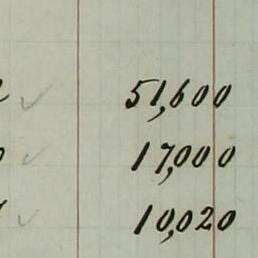 51,600
17,000
10,020